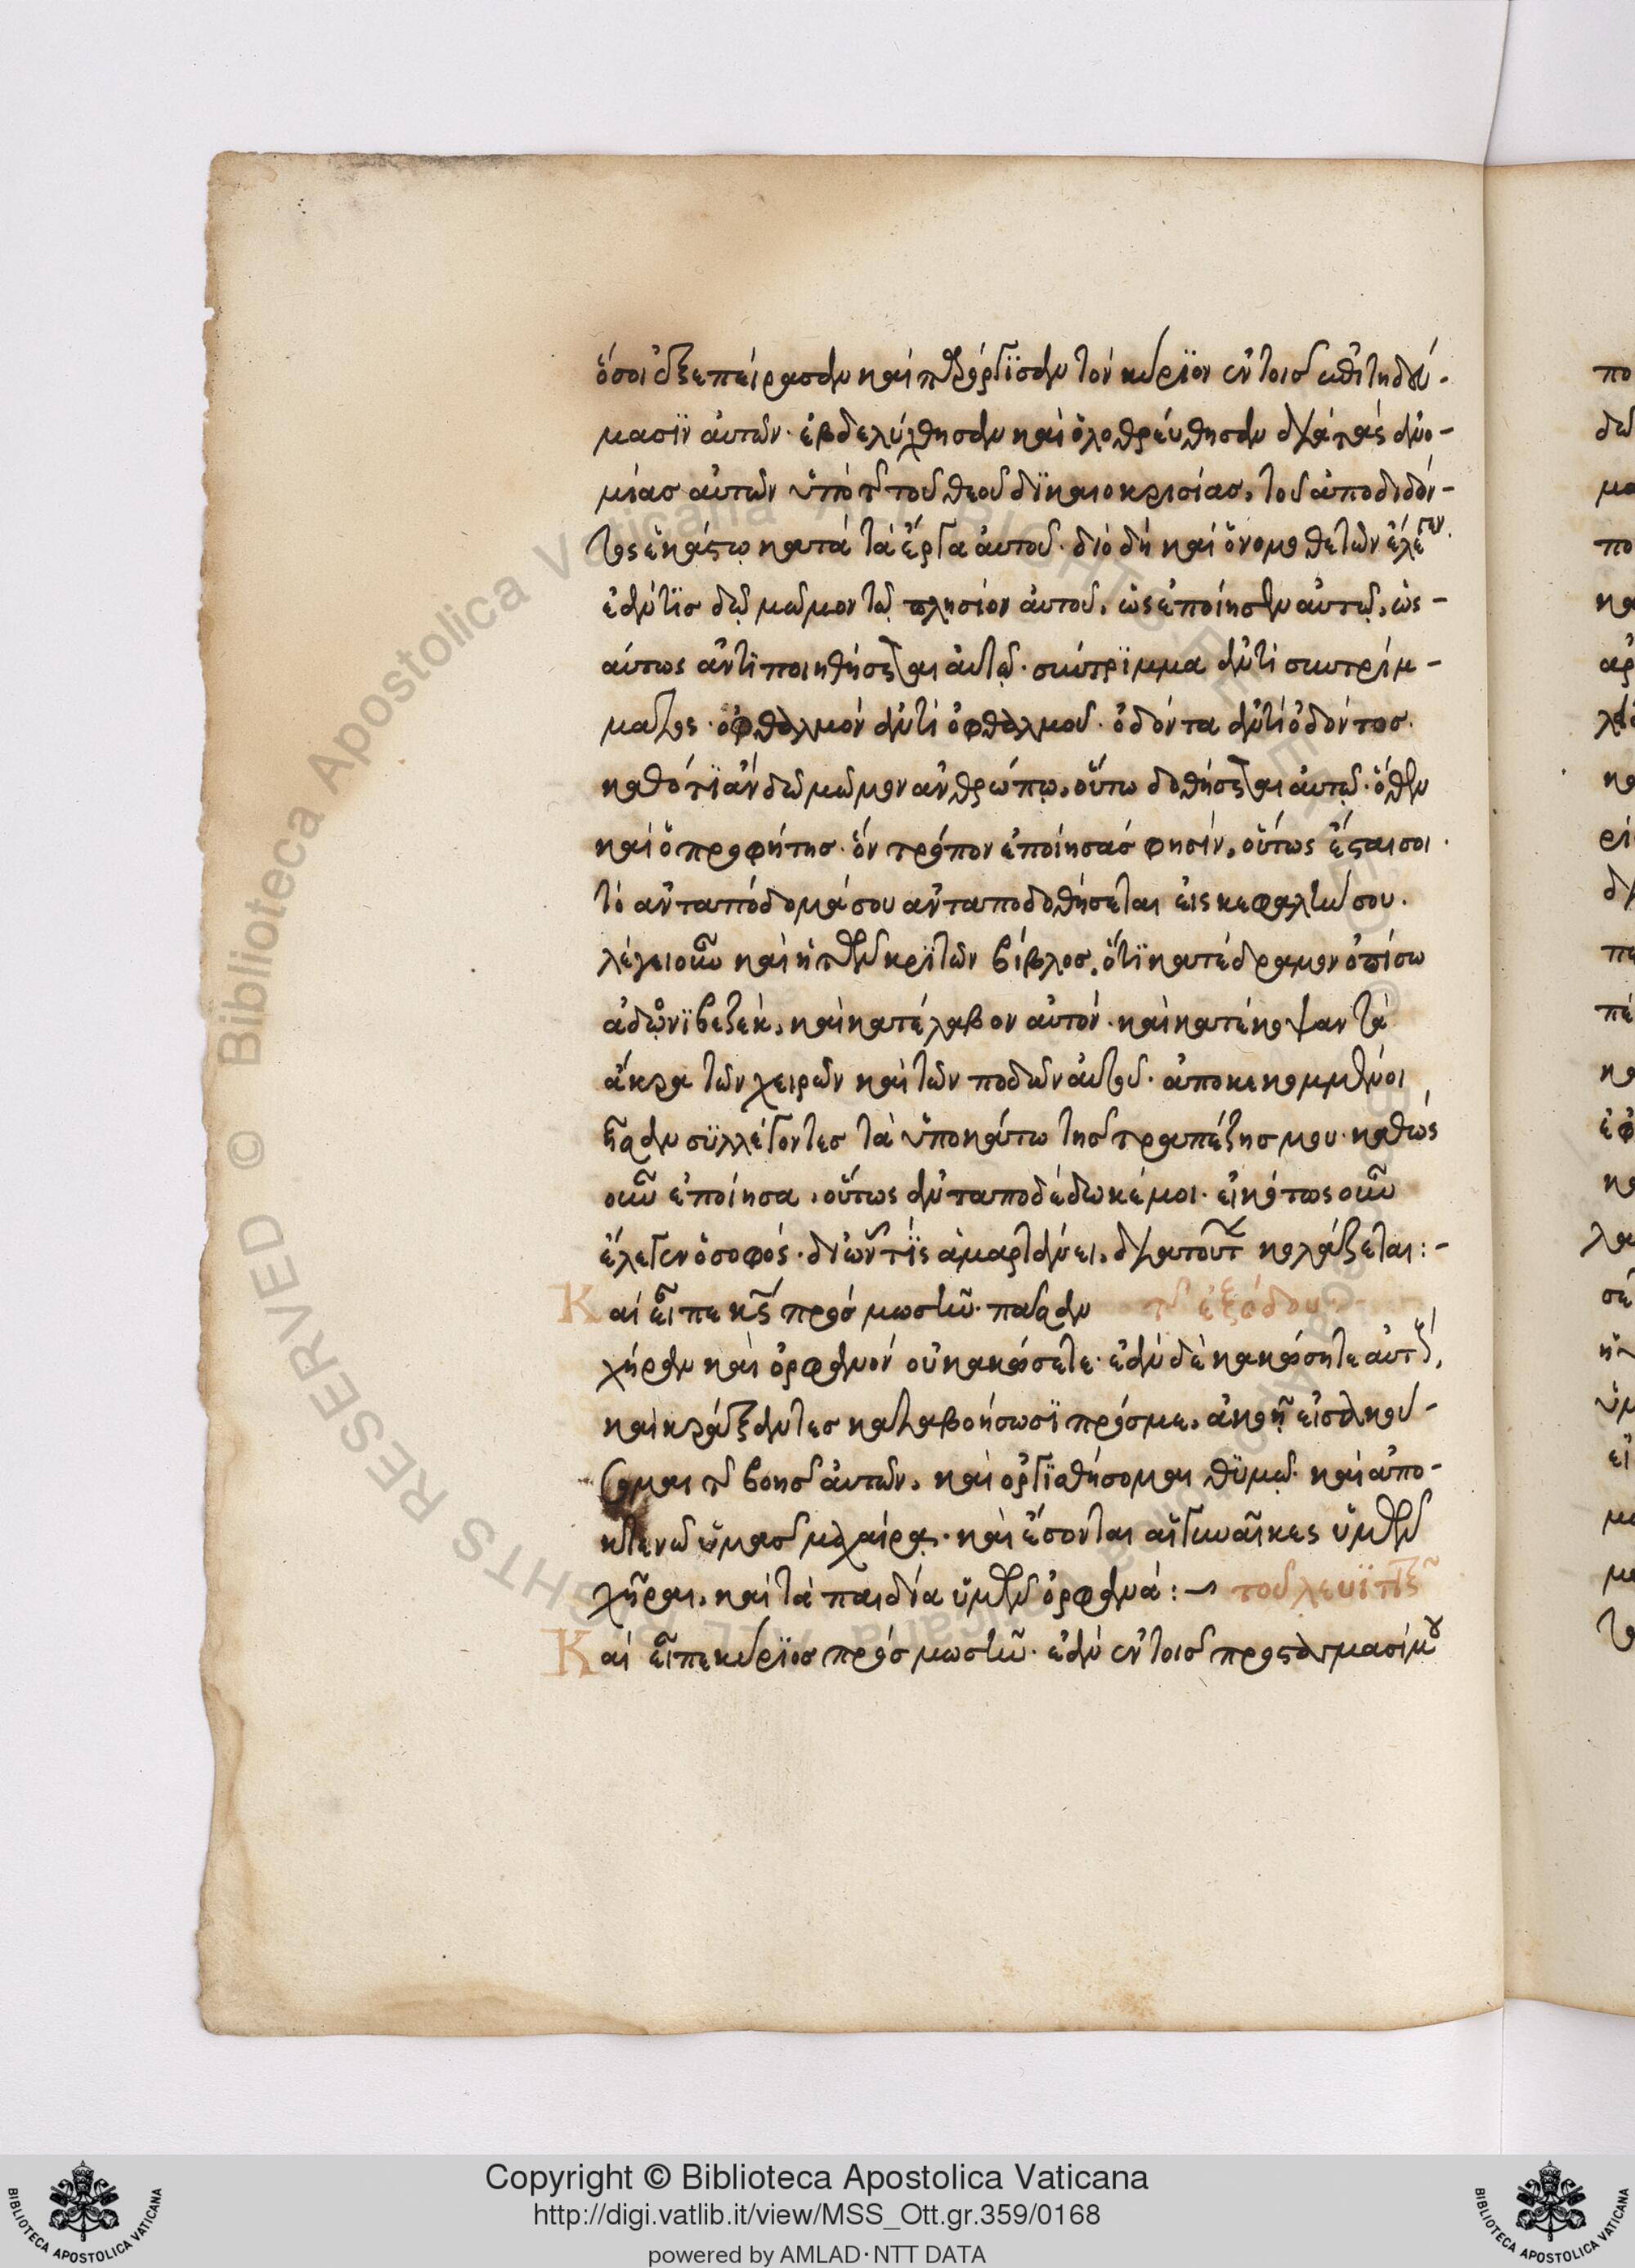 ὅσοι ἐξεπείρασαν καὶ παρώργϊσαν τὸν κύρϊον ἐν τοῖσ ἐπιτηδεύ-
μασϊν αὐτῶν· ἐβδελύχθησαν καὶ ὀλοθρεύθησαν διὰ τὰς ἀνο-
μίας αὐτῶν ὑπὸ τῆς τοῦ θεοῦ δϊκαιοκρισίας, τοῦ ἀποδιδόν-
τος ἑκάστῳ κατὰ τὰ ἔργα αὐτοῦ· διὸ δὴ καὶ ὁ νομοθετῶν ἔλεγεν·
ἐάν τϊσ δῷ μῶμον τῷ πλησίον αὐτοῦ, ὡς ἐποίησεν αὐτῷ, ὡς-
αύτως ἀντϊποιηθήσεται αὐτῷ· σύντρϊμμα ἀντὶ συντρίμ-
ματος· ὀφθαλμὸν ἀντὶ ὀφθαλμοῦ· ὀδόντα ἀντὶ ὀδόντοσ·
καθότϊ ἂν δῶ μῶμον ἀνθρώπῳ, οὕτω δοθήσεται αὐτῷ· ὅθεν
καὶ ὁ προφήτησ· ὃν τρόπον ἐποίησάσ φησὶν, οὕτως ἔσται σοι·
τὸ ἀνταπόδομά σου ἀνταποδοθήσεται εἰς κεφαλήν σου·
λέγει οὖν καὶ ἡ τῶν κρϊτῶν βίβλοσ, ὅτϊ κατέδραμον ὀπίσω
ἀδωνϊβεζὲκ, καὶ κατέλαβον αὐτόν· καὶ κατέκοψαν τὰ
ἄκρα τῶν χειρῶν καὶ τῶν ποδῶν αὐτοῦ· ἀποκεκομμένοι
ἦσαν συλλέγοντεσ τὰ ὑποκάτω τῆσ τραπέζησ μου· καθὼς
οὖν ἐποίησα, οὕτως ἀνταποδέδωκέ μοι· εἰκότως οὖν
ἔλεγεν ὁ σοφός· δι' ὧν τϊς ἁμαρτάνει, διὰ τούτων κολάζεται:-
Καὶ εἶπε κς πρὸσ μωσῆν· πᾶσαν τῆς ἐξόδου
χήραν καὶ ὀρφανὸν οὐ κακώσετε· ἐὰν δὲ κακώσητε αὐτοὺς,
καὶ κράξαντεσ καταβοήσωσϊ πρόσ με, ἀκοῇ εἰσακού-
σομαι τῆς βοῆσ αὐτῶν, καὶ ὀργϊσθήσομαι θϋμῷ· καὶ ἀπο-
κτενῶ ὑμᾶσ μαχαίρᾳ· καὶ ἔσονται αἱ γυναῖκες ὑμῶν
χῆραι, καὶ τὰ παιδία ὑμῶν ὀρφανά:- τοῦ λευϊτικοῦ
Καὶ εἶπε κύρϊοσ πρὸσ μωσῆν· ἐὰν ἐν τοῖσ προστάγμασί μου
Copyright © Biblioteca Apostolica Vaticana
http://digi.vatlib.it/view/MSS_Ott.gr.359/0168
powered by AMLAD·NTT DATA